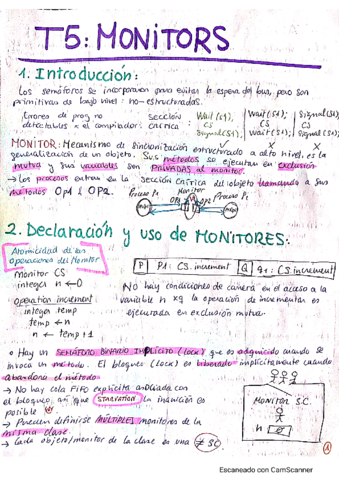 T5: MONITORS
1. Introducción:
Los semáforos se incorporan para evitar la espera del bus, pero son
primitivas de bajo nivel: no-estructuradas.
Errores de prog no sección Wait(S1); Wait(S1); Signal(S1)
detectables x el compilador: crítica: CS wait(S1); CS
Signal(S1) wait(S1); Signal(S1)
MONITOR: Mecanismo de sincronización estructurado a alto nivel. es la
generalización de un objeto. Sus métodos se ejecutan en exclusión
mutua y sus variables son PRIVADAS al monitor.
→ Los procesos entran en la sección crítica del objeto llamando a sus
métodos OP1 & OP2.
Proceso Monitor OP1 OP2 Proceso P1
2. Declaración y uso de MONITORES:
Atomicidad de las
operaciones del Monitor
P P1: CS.increment Q q1: CS.increment
Monitor CS
integer n ← 0
operation increment
integer temp
temp ← n
n ← temp + 1
NO hay condiciones de carrera en el acceso a la
variable n xq la operación de incrementar es
ejecutada en exclusión mutua.
Hay un SEMÁFORO BINARIO IMPLÍCITO (lock) que es adquirido cuando se
invoca un método. El bloqueo (lock) es liberado implícitamente cuando
abandona el método.
→ No hay cola FIFO explícita asociada con
el bloqueo, así que STARVATION la inanición es
posible
→ Pueden definirse MÚLTIPLES monitores de la
misma clase.
→ Cada objeto/monitor de la clase es una ≠ SC
MONITOR S.C.
n
Escaneado con CamScanner